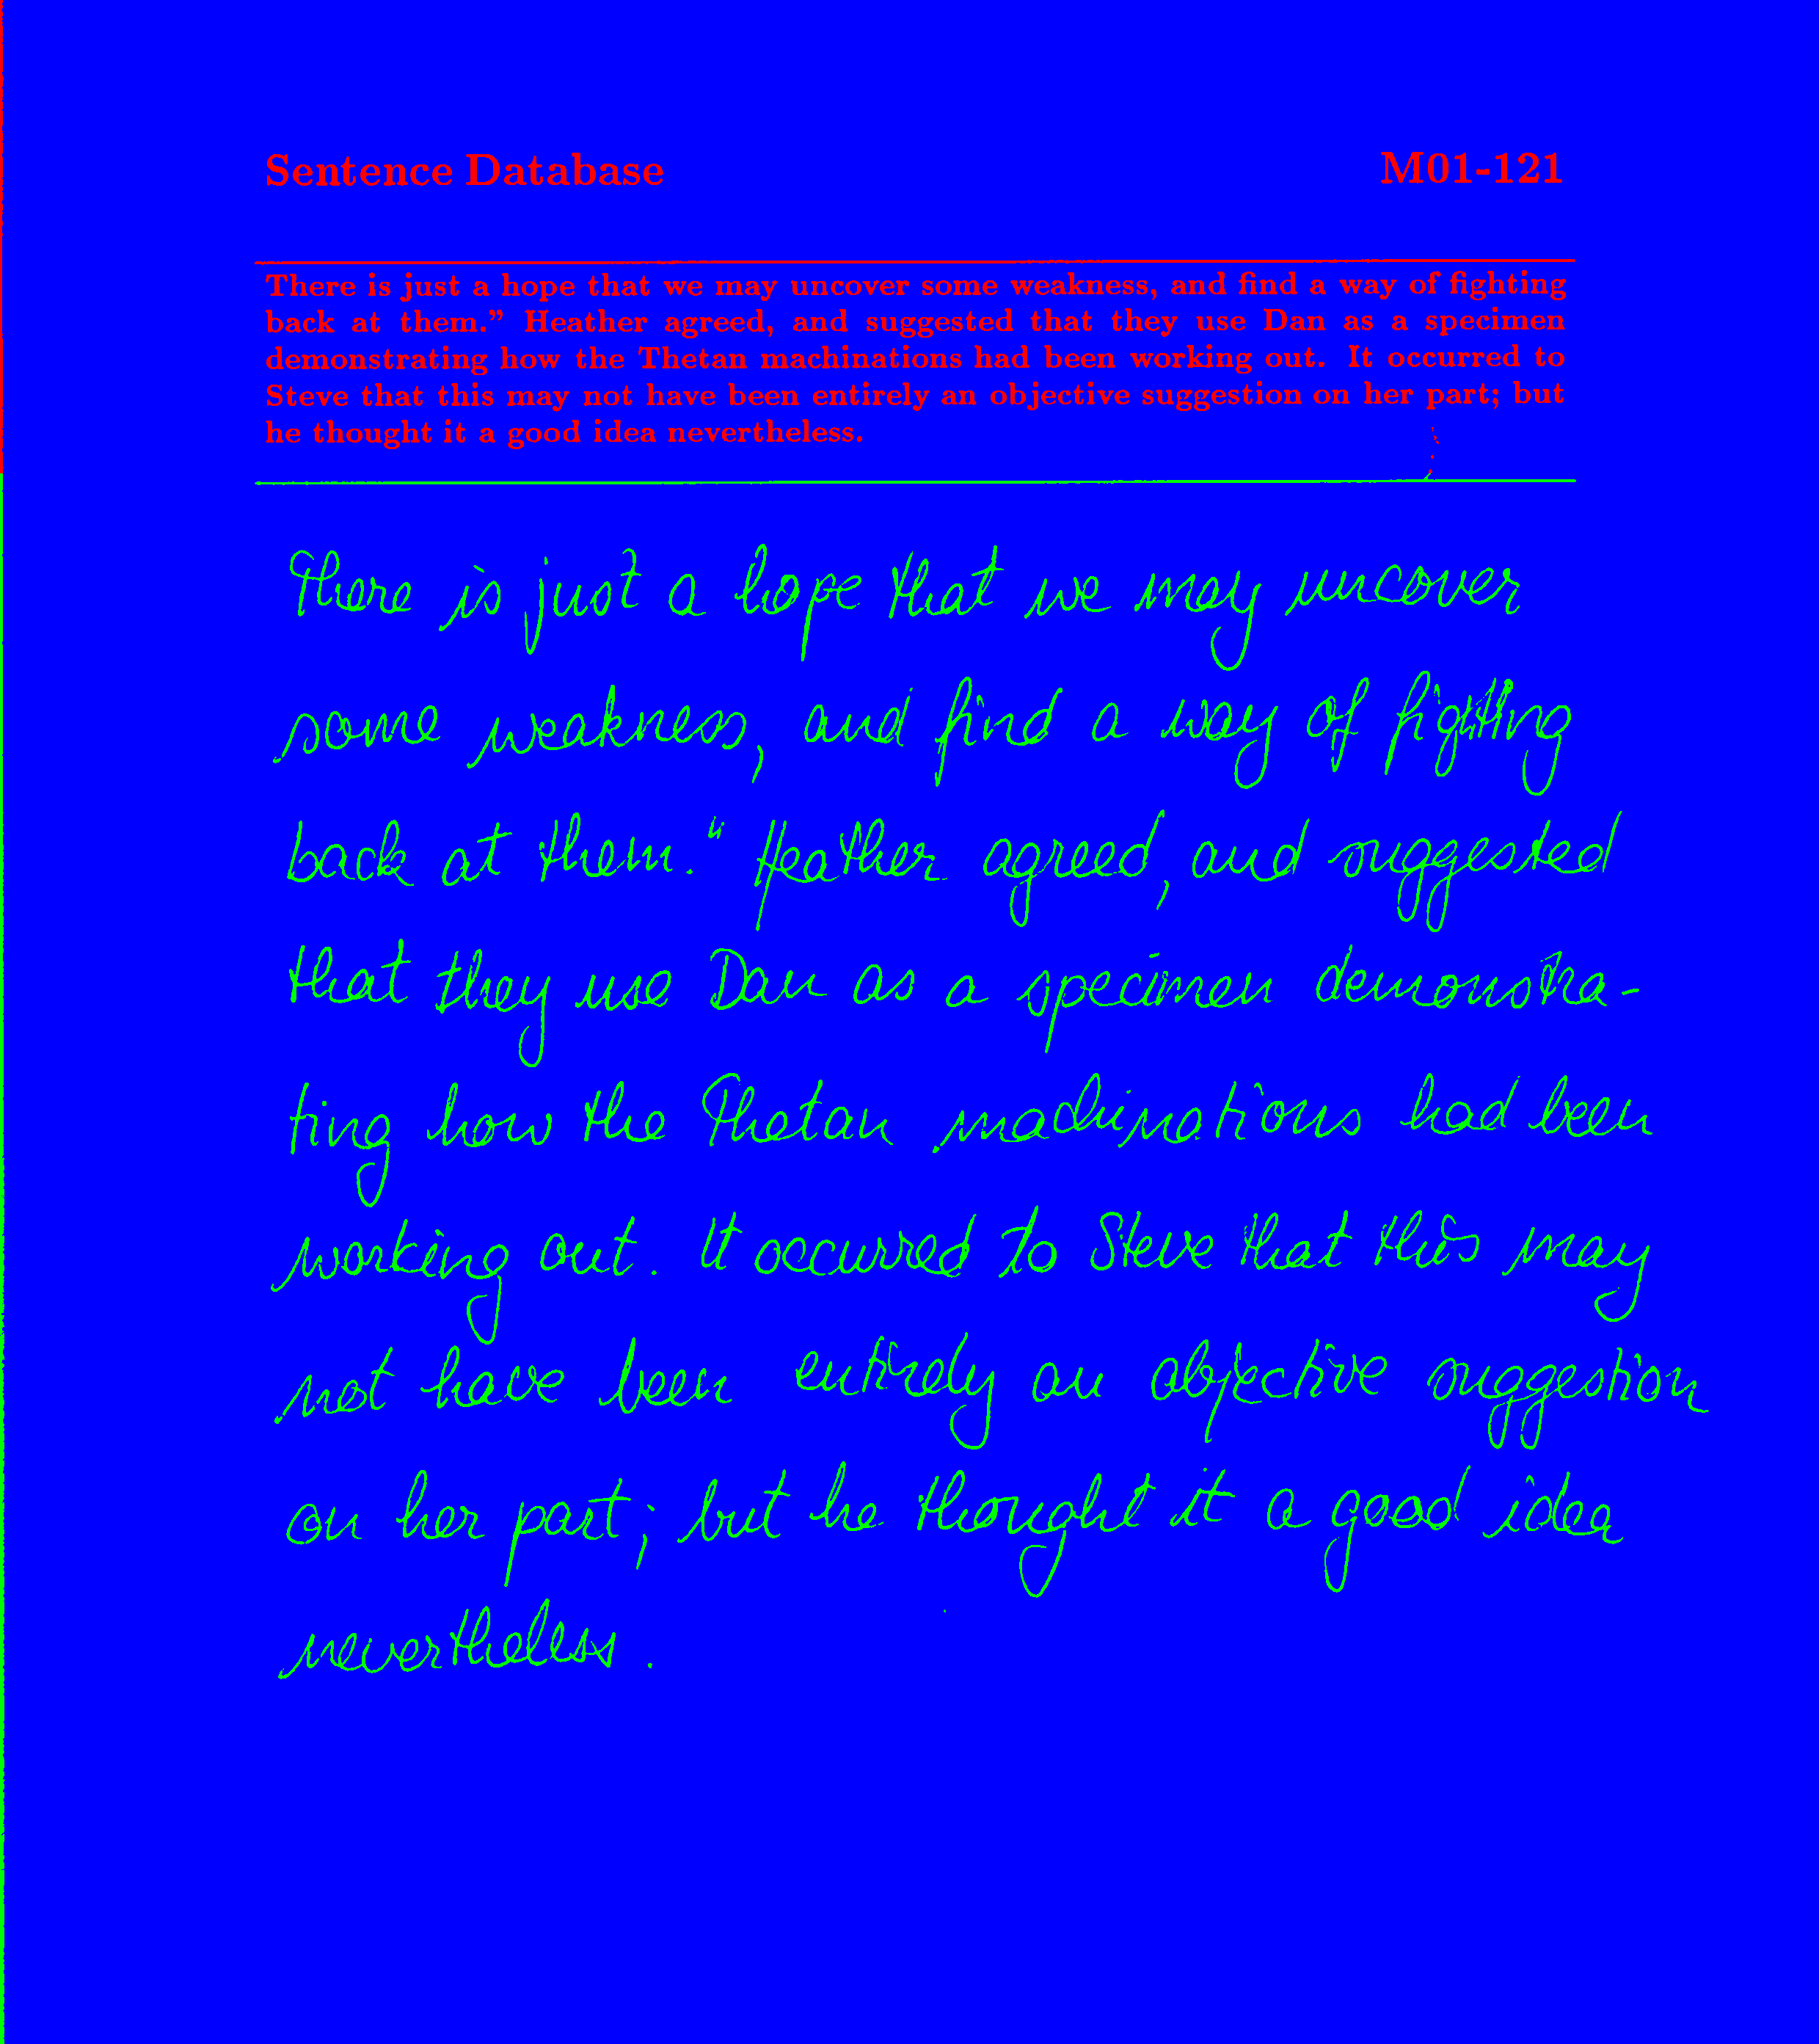 Sentence Database M01-121
There is just a hope that we may uncover some weakness, and find a way of fighting
back at them." Heather agreed, and suggested that they use Dan as a specimen
demonstrating how the Thetan machinations had been working out. It occurred to
Steve that this may not have been entirely an objective suggestion on her part; but
he thought it a good idea nevertheless.
There is just a hope that we may uncover
some weakness, and find a way of fighting
back at them." Heather agreed, and suggested
that they use Dan as a specimen demonstra-
ting how the Thetan machinations had been
working out. It occurred to Steve that this may
not have been entirely an objective suggestion
on her part; but he thought it a good idea
nevertheless.